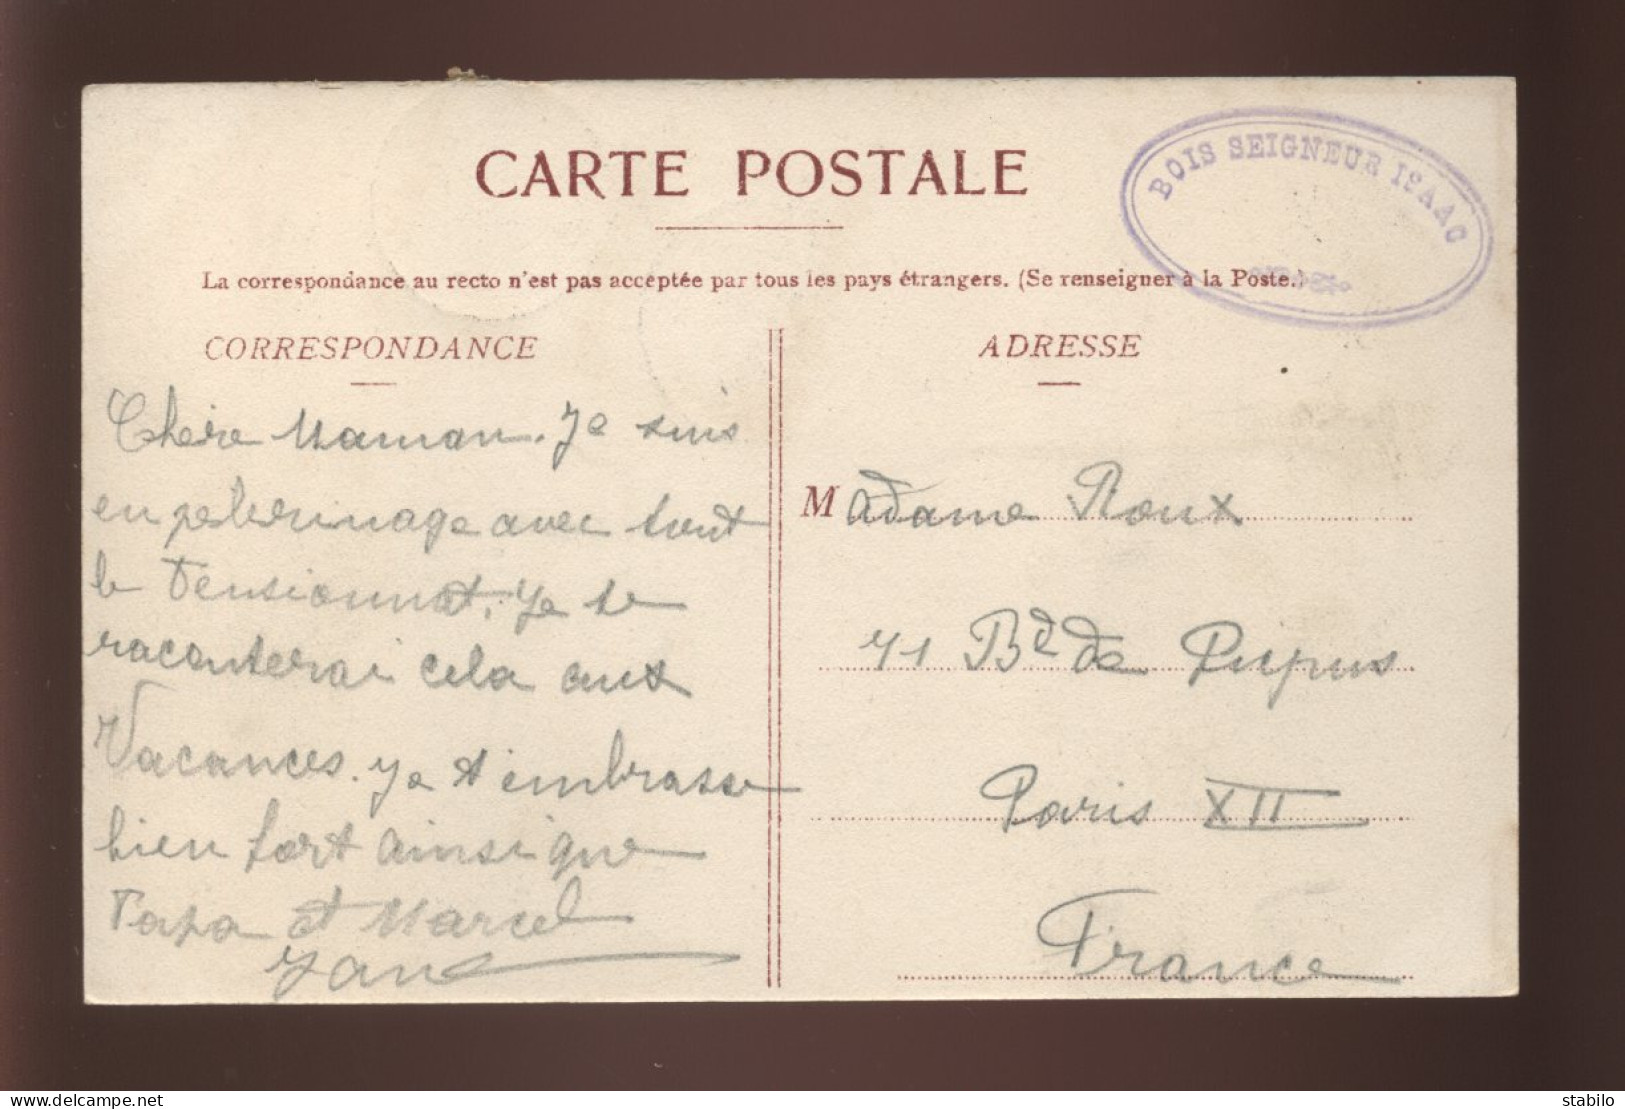 CARTE POSTALE
BOIS SEIGNEUR ISAAC
La correspondance au recto n'est pas acceptée par tous les pays étrangers. (Se renseigner à la Poste.)
CORRESPONDANCE
Chère Maman. Je suis
en pelerinage avec tout
le Pensionnat. Je te
raconterai cela aux
Vacances. Je t'embrasse
bien fort ainsi que
Papa et Marcel
ADRESSE
Madame Roux
71 Bd de Picpus
Paris XII
France
stabilo